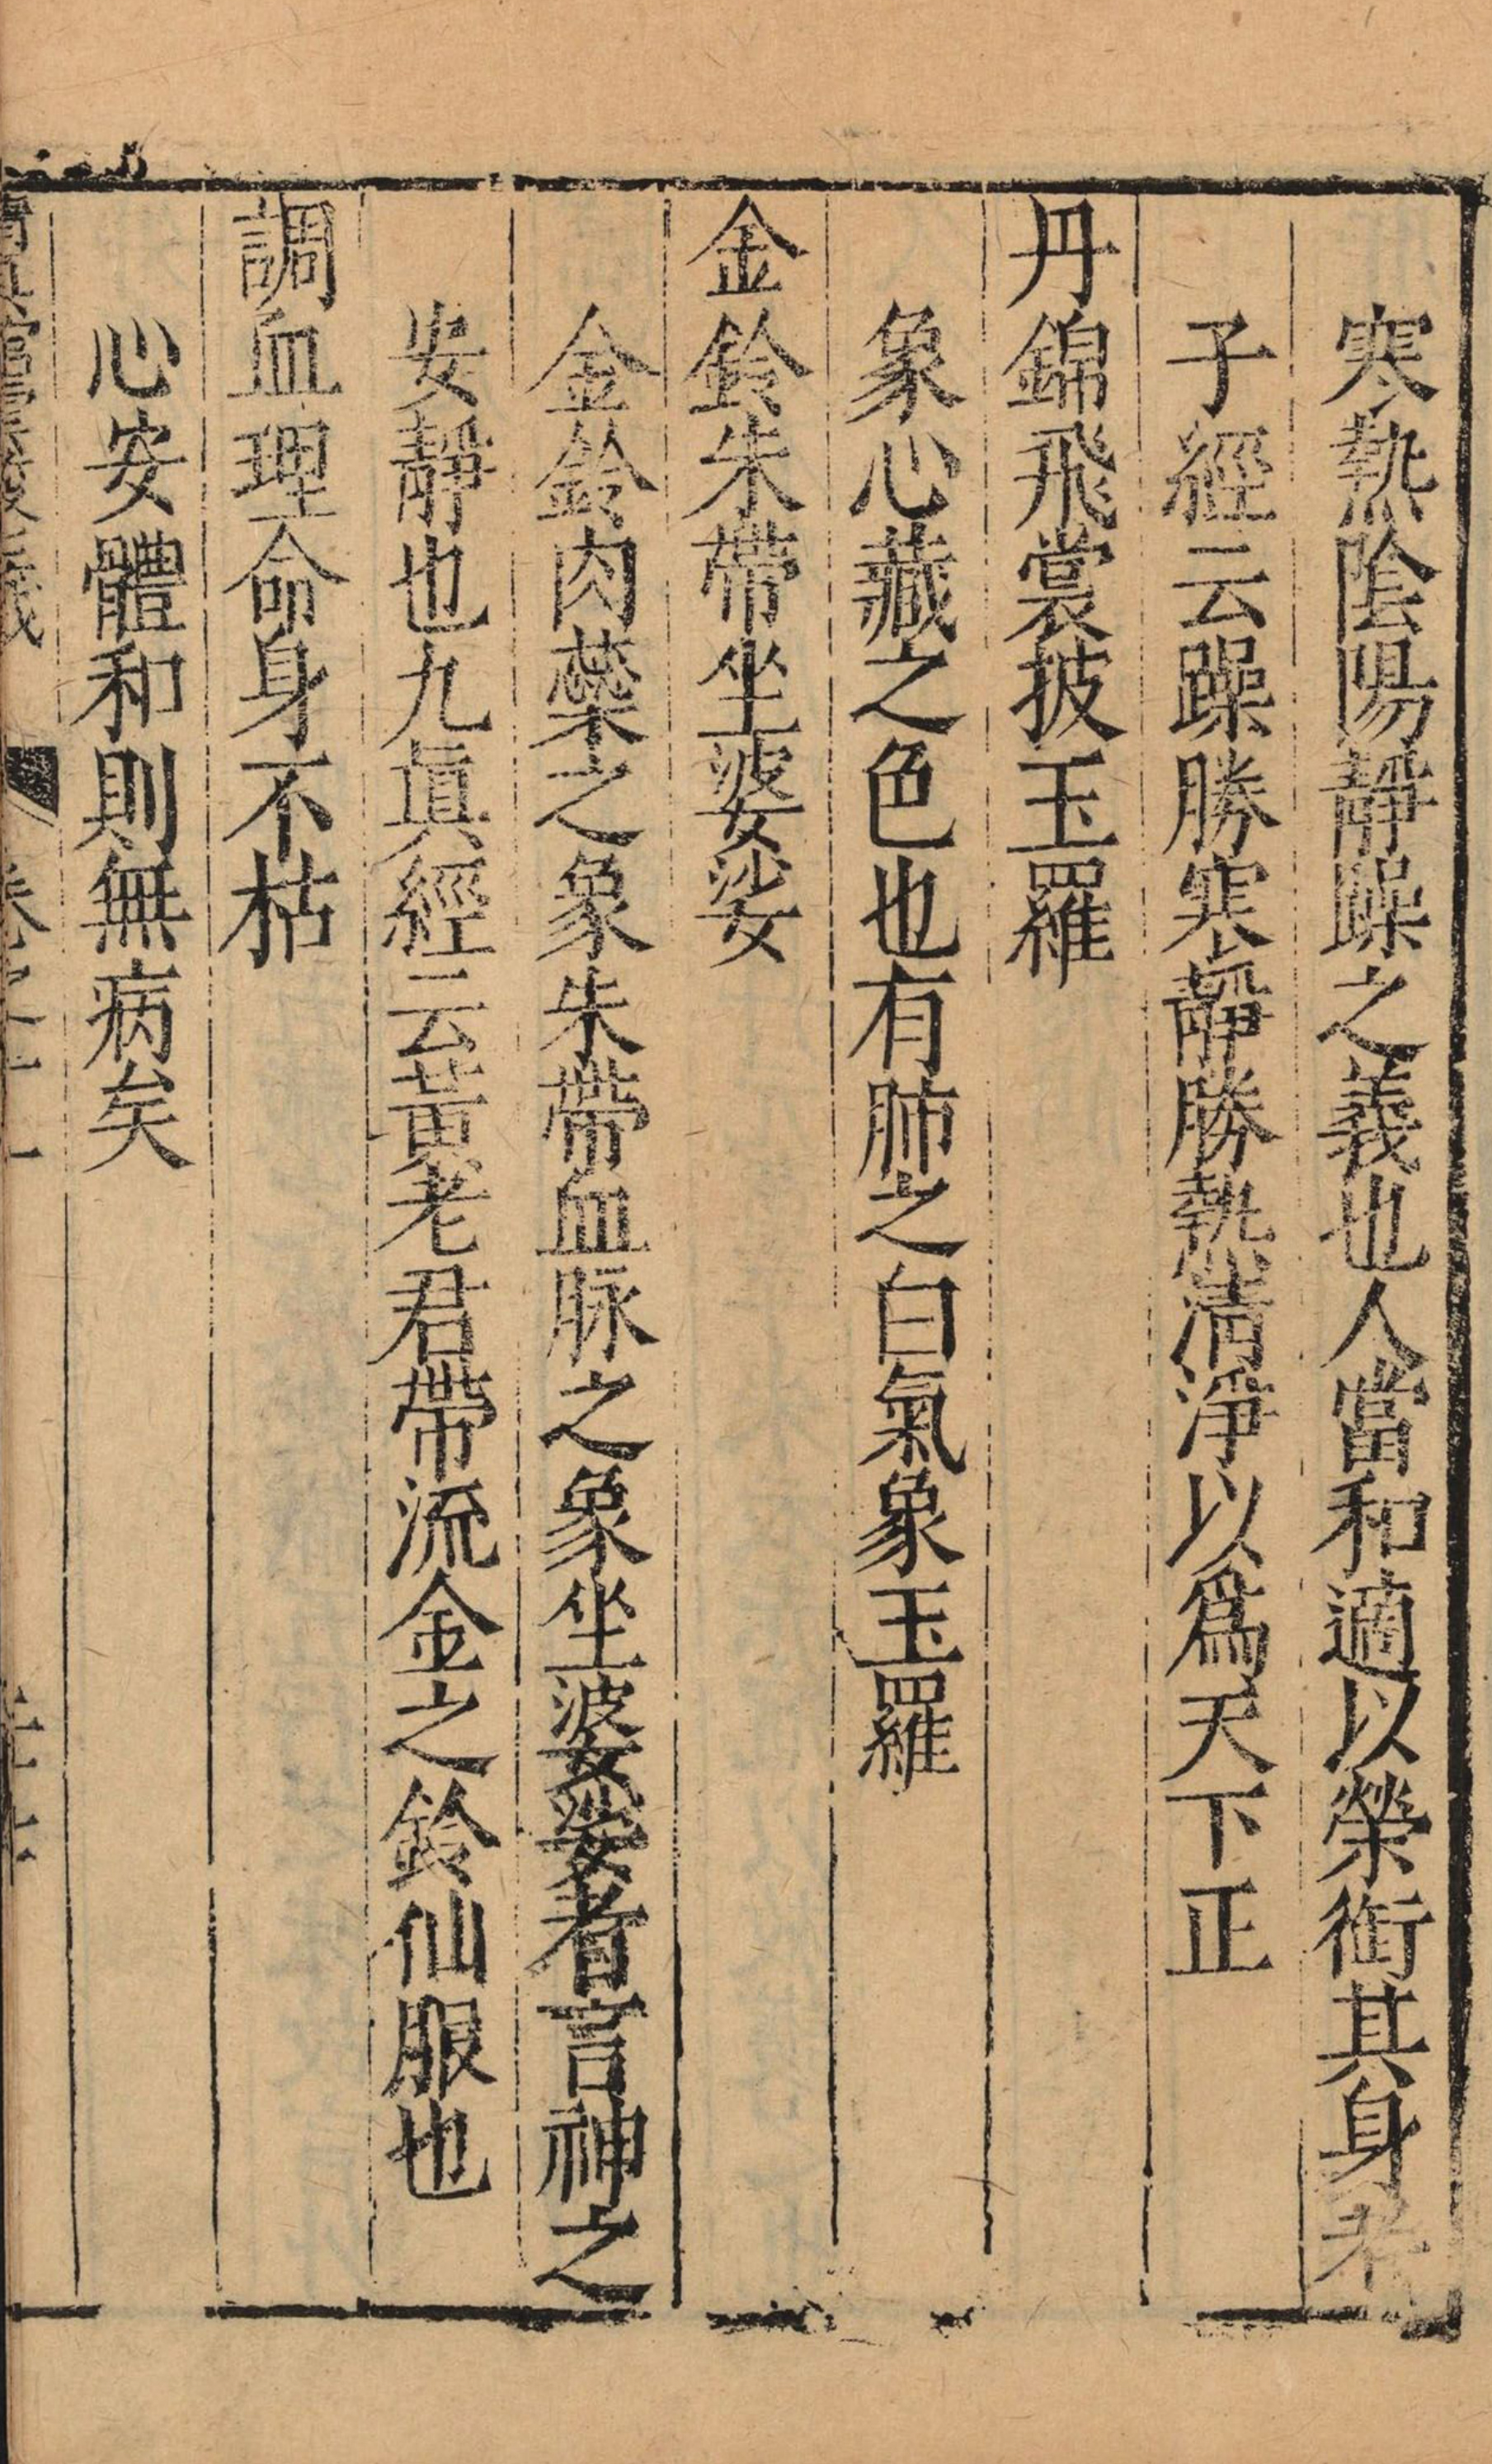 寒熱陰陽靜躁之義也人當和適以榮衛其身老
子經云躁勝寒靜勝熱清淨以爲天下正
丹錦飛裳披玉羅
象心藏之色也有肺之白氣象玉羅
金鈴朱帶坐婆娑
金鈴內蘂之象朱帶血脉之象坐婆娑者言神之
安靜也九眞經云黃老君帶流金之鈴仙服也
調血理命身不枯
心安體和則無病矣
卷之十一